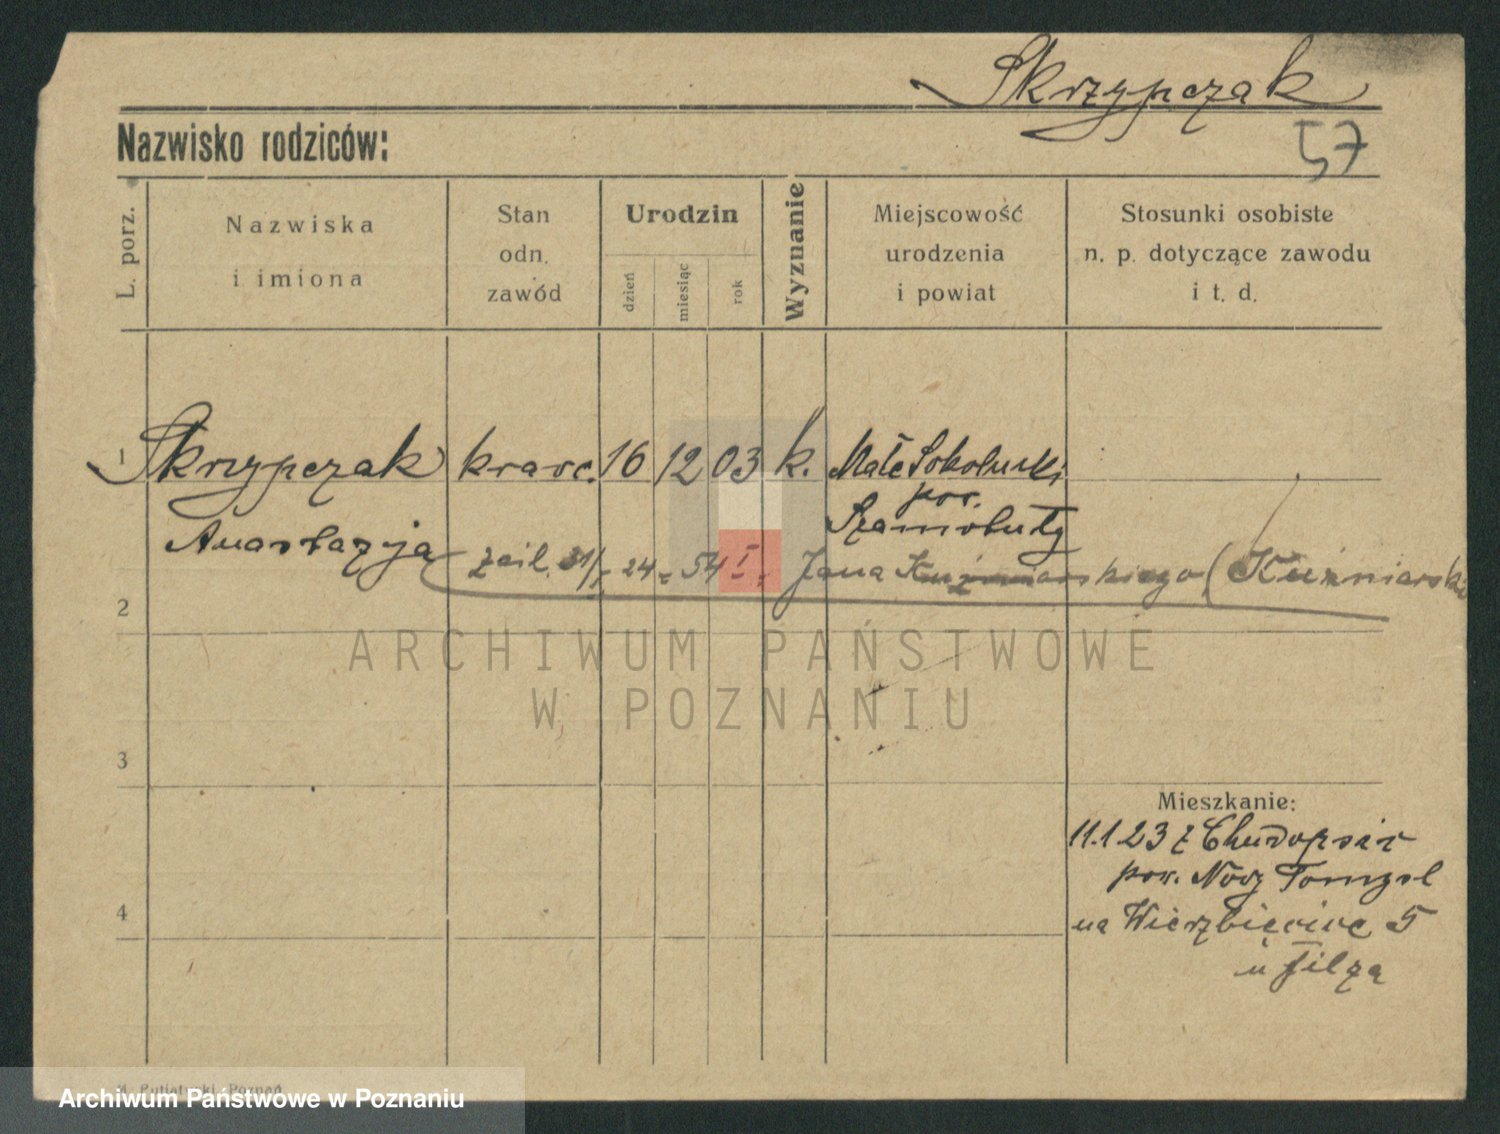 Skrzypczak
57
Nazwisko rodziców:
L. porz.
Nazwiska
i imiona
Stan
odn.
zawód
Urodzin
dzień
miesiąc
rok
Wyznanie
Miejscowość
urodzenia
i powiat
Stosunki osobiste
n. p. dotyczące zawodu
i t. d.
1 Skrzypczak krawc. 16 12 03 k. Małe Sokolniki
pow.
Anastazja Szamotuły
zaśl. 31/1 24 54 I. Jana Kuźniarskiego (Kuźniarski
2
ARCHIWUM PAŃSTWOWE
W POZNANIU
3
Mieszkanie:
11.1 23 z Chudopsic
pow. Nowy Tomysl
4
na Wierzbięcice 5
u
M. Putiatycki, Poznań
Archiwum Państwowe w Poznaniu